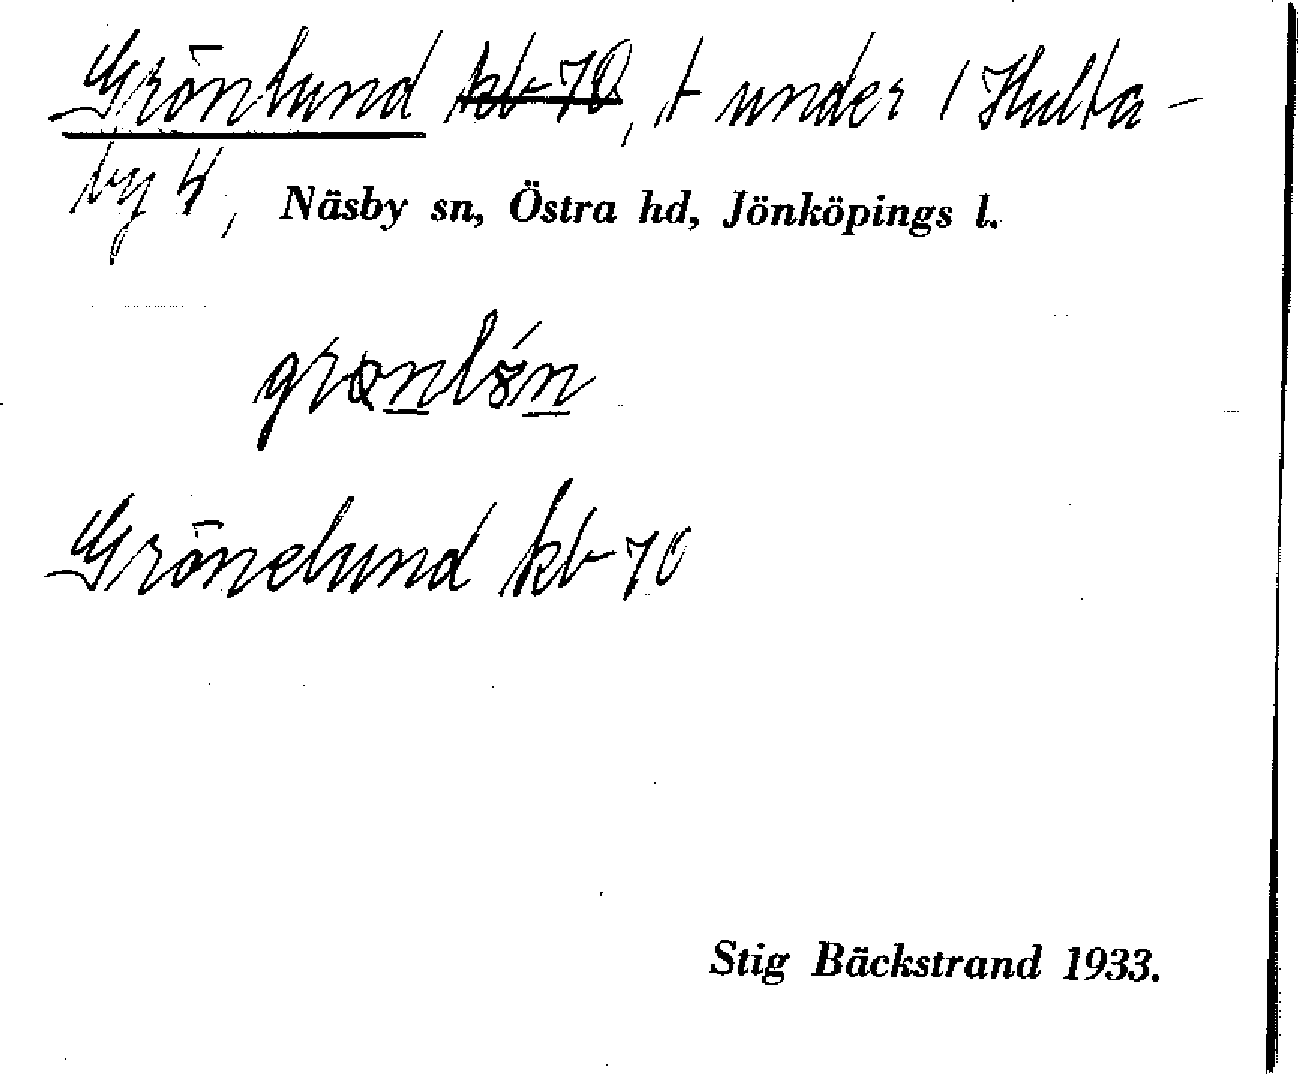 Grönlund kb 70, t under 1 Hulta-
by 4, Näsby sn, Östra hd, Jönköpings l.
Grönelund kb 70
Stig Bäckstrand 1933.